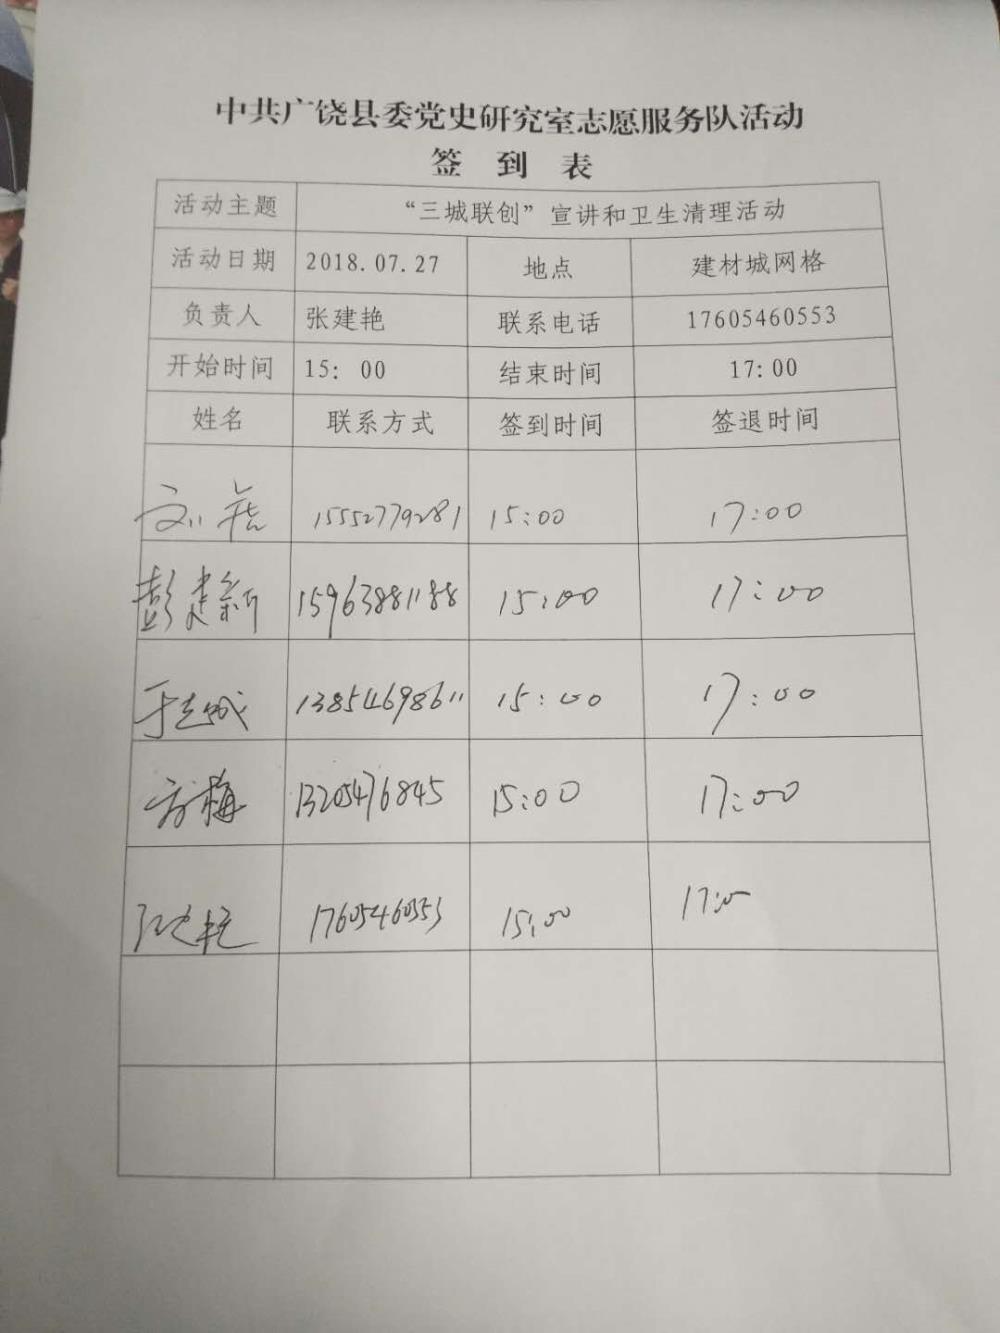 中共广饶县委党史研究室志愿服务队活动
签 到 表
活动主题 “三城联创”宣讲和卫生清理活动
活动日期 2018.07.27 地点 建材城网格
负责人 张建艳 联系电话 17605460553
开始时间 15: 00 结束时间 17:00
姓名 联系方式 签到时间 签退时间
刘 15552779281 15:00 17:00
彭建新 15963881188 15:00 17:00
于志城 13854698611 15:00 17:00
方梅 13205476845 15:00 17:00
张建艳 17605460553 15:00 17:00